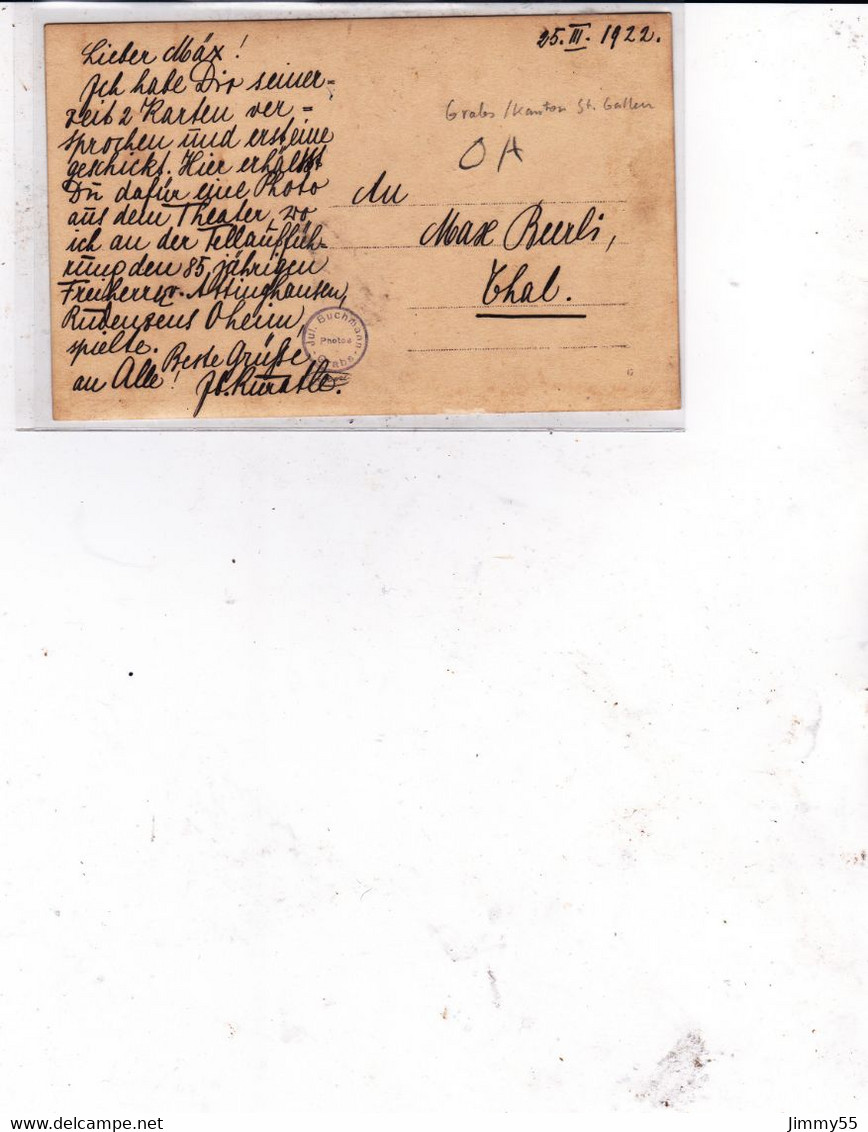 25. III. 1922.
Lieber Mäx!
Ich habe Dir seiner=
zeit 2 Karten ver=
sprochen und erst eine
geschickt. Hier erhältst
Du dafür eine Photo
aus dem Theater, wo
ich an der Tellauffüh-
rung den 85 jährigen
Freiherr v. Attinghausen,
Rudenzens Oheim,
spielte.
Beste Grüße
an Alle! Jb. Kuratle.
Grabs / Kanton St. Gallen
OA
An
Max Buerli,
Thal.
Jul. Buchmann
Photos
Grabs
delcampe.net
Jimmy55